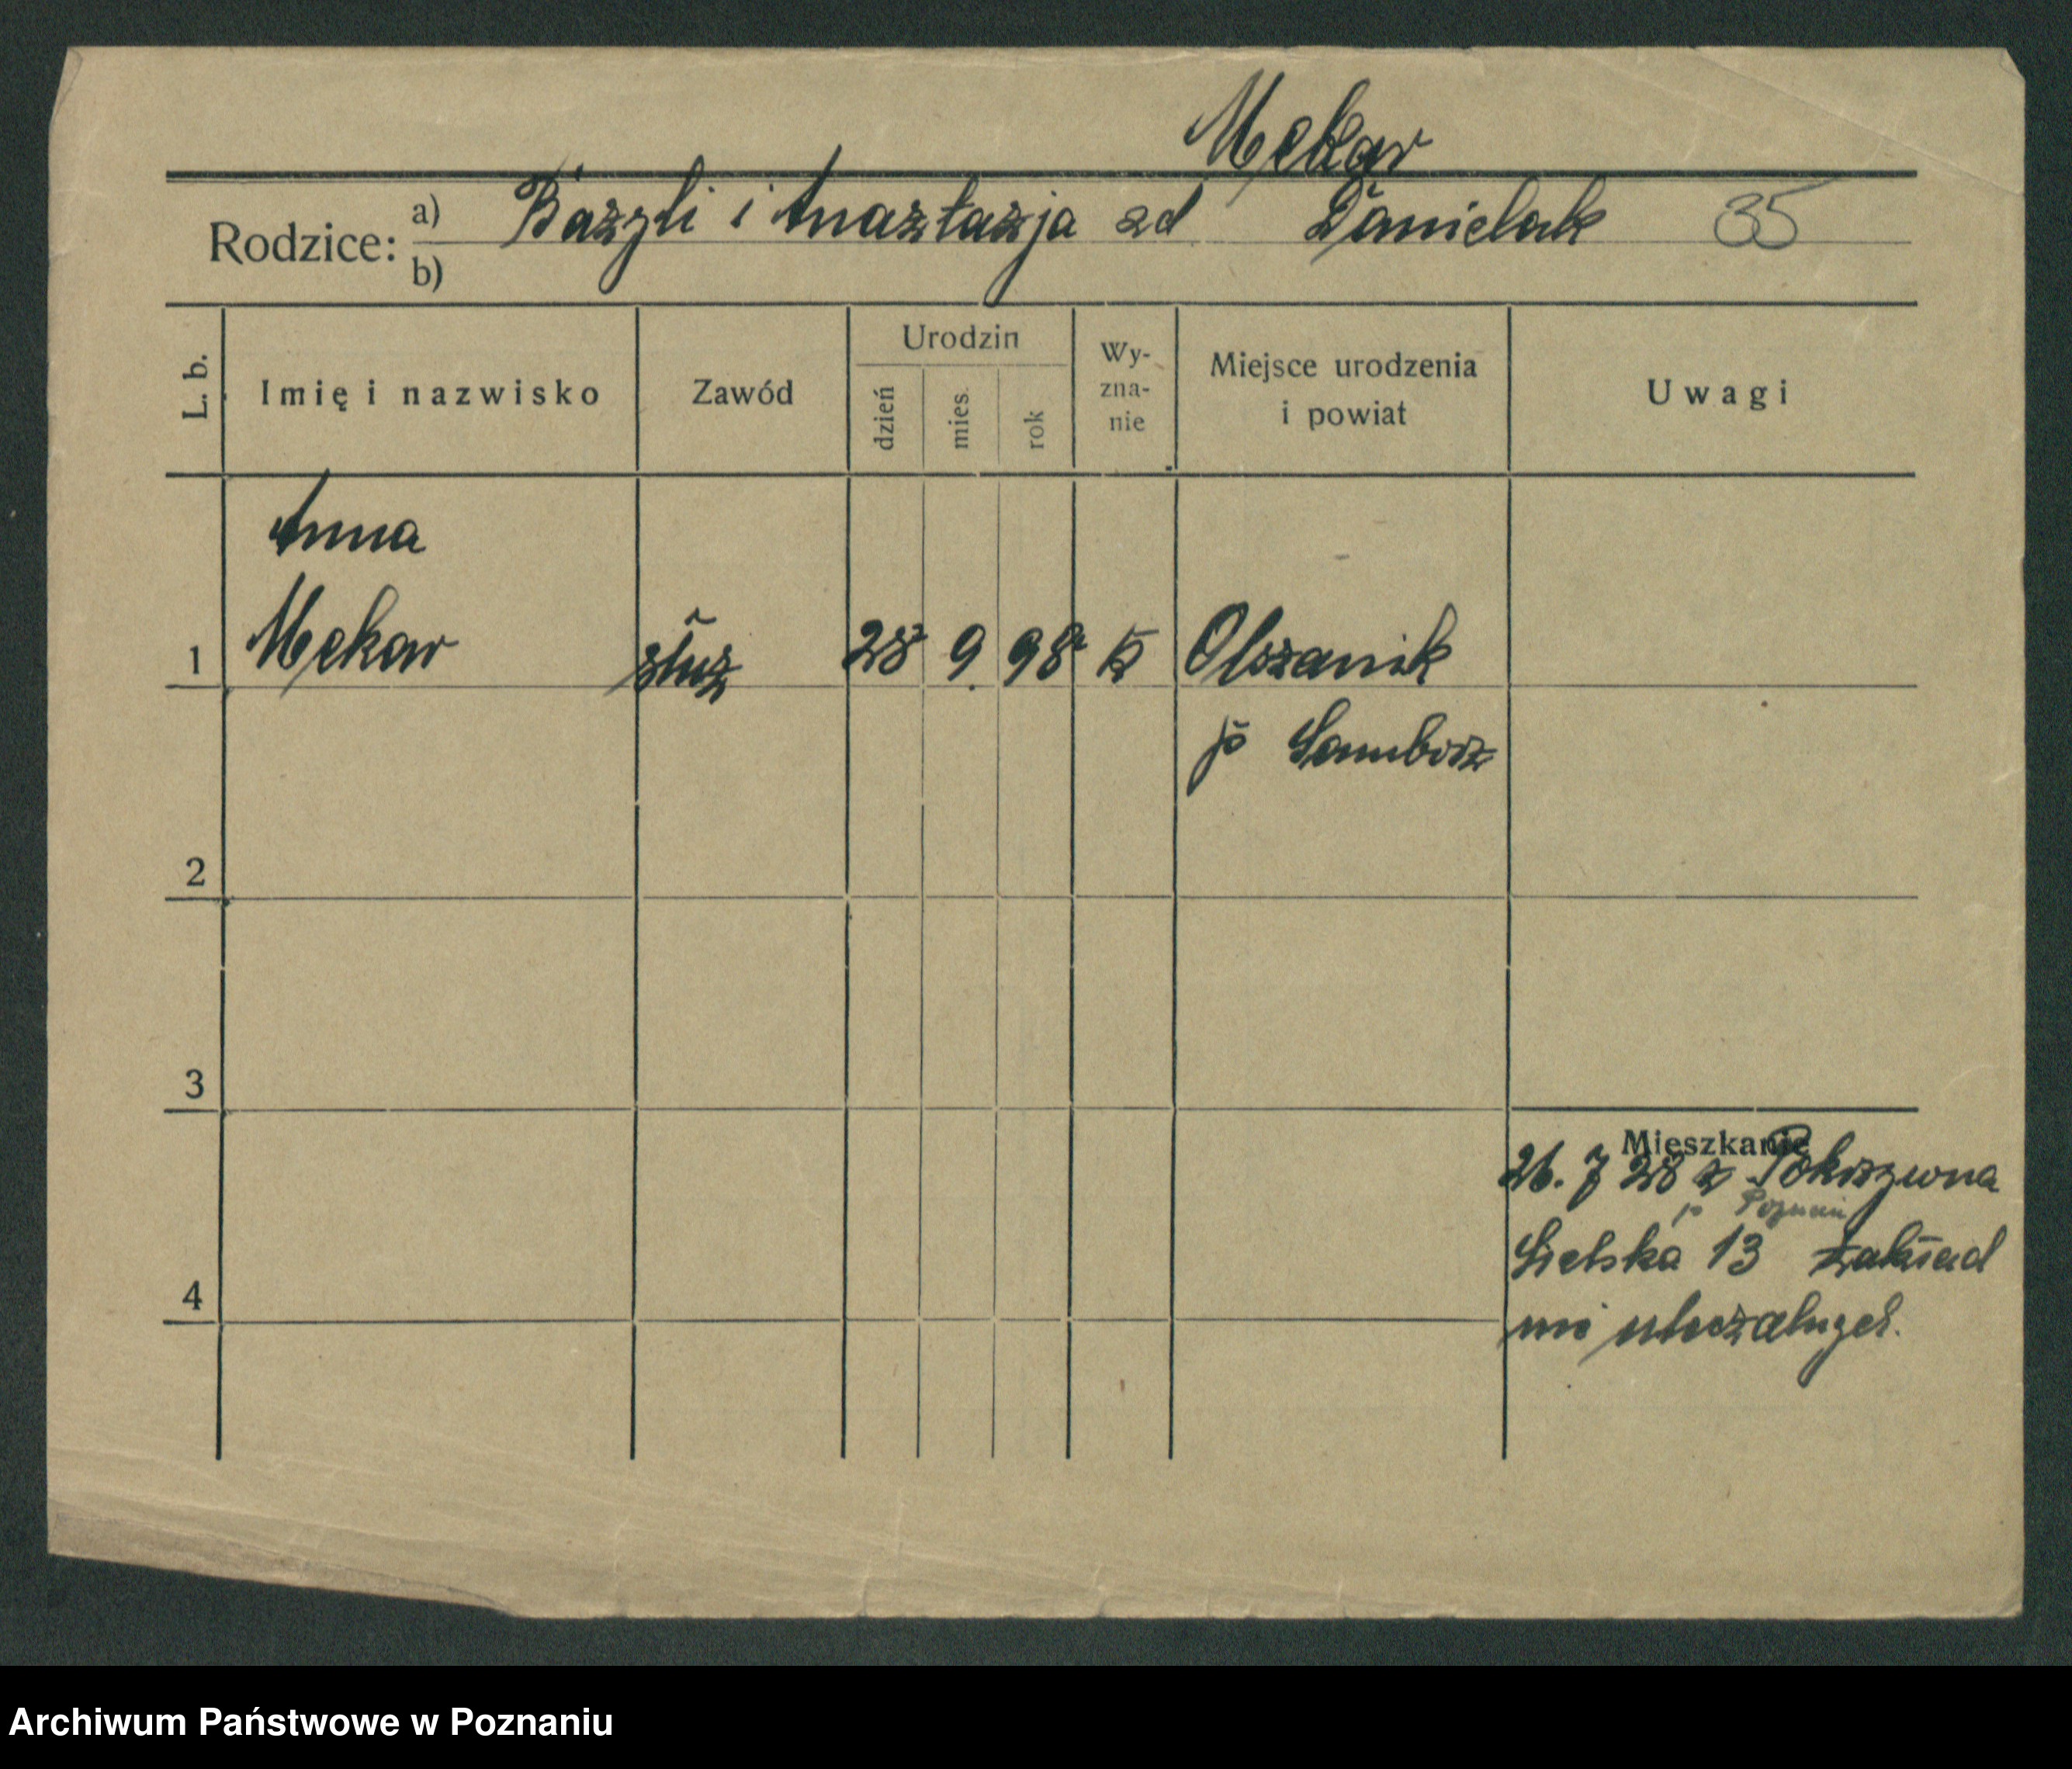 Mekar
Rodzice: a) Bazyli i Anastazja zd Danielak 35
b)
L. b. Imię i nazwisko Zawód Urodzin dzień mies. rok Wy-zna-nie Miejsce urodzenia i powiat Uwagi
Anna
1 Mekar służ 28 9 98 Olszanik
p Sambor
2
3
Mieszkanie
26. 7 28 z Pokrzywna
p Poznań
4 Sielska 13 zakład
Archiwum Państwowe w Poznaniu